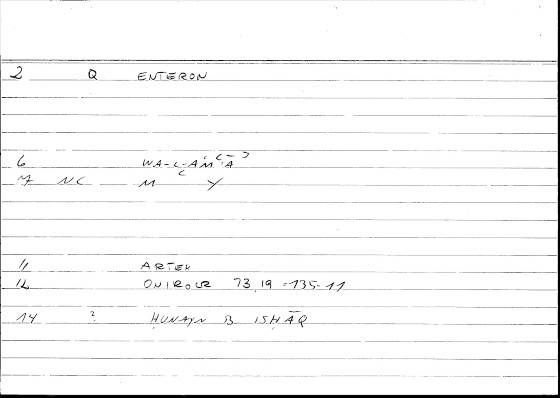 2 Q ENTERON
6 WA-L-AMʿĀʾ
7 NC M ʿ Y
11 ARTEM
12 ONIROCR 73,19 = 135-11
14 ? ḤUNAYN B ISḤĀQ